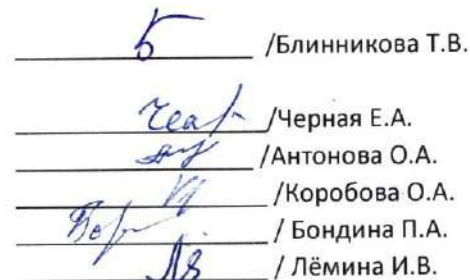 /Блинникова Т.В.
/Черная Е.А.
/Антонова О.А.
/Коробова О.А.
/ Бондина П.А.
/ Лёмина И.В.